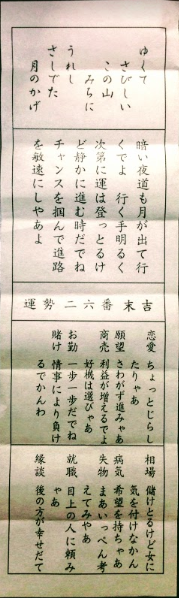 ゆくて
さびしい
この山
みちに
うれし
さしでた
月のかげ
暗い夜道も月が出て行
くでよ　行く手明るく
次第に運は登っとるけ
ど静かに進む時だでね
チャンスを掴んで進路
を敏速にしやあよ
運勢二六番末吉
恋愛　ちょっとじらし
たりゃあ
願望　さわがず進みゃあ
商売　利益が増えるでよ
好機は選びゃあ
お勤　一歩一歩だでね
賭け　情事により負け
るでかんわ
相場　儲けとるけど女に
気を付けなかん
病気　希望を持ちゃあ
失物　まあいっぺん考
えてみやあ
就職　目上の人に頼み
ゃあ
縁談　後の方が幸せだて